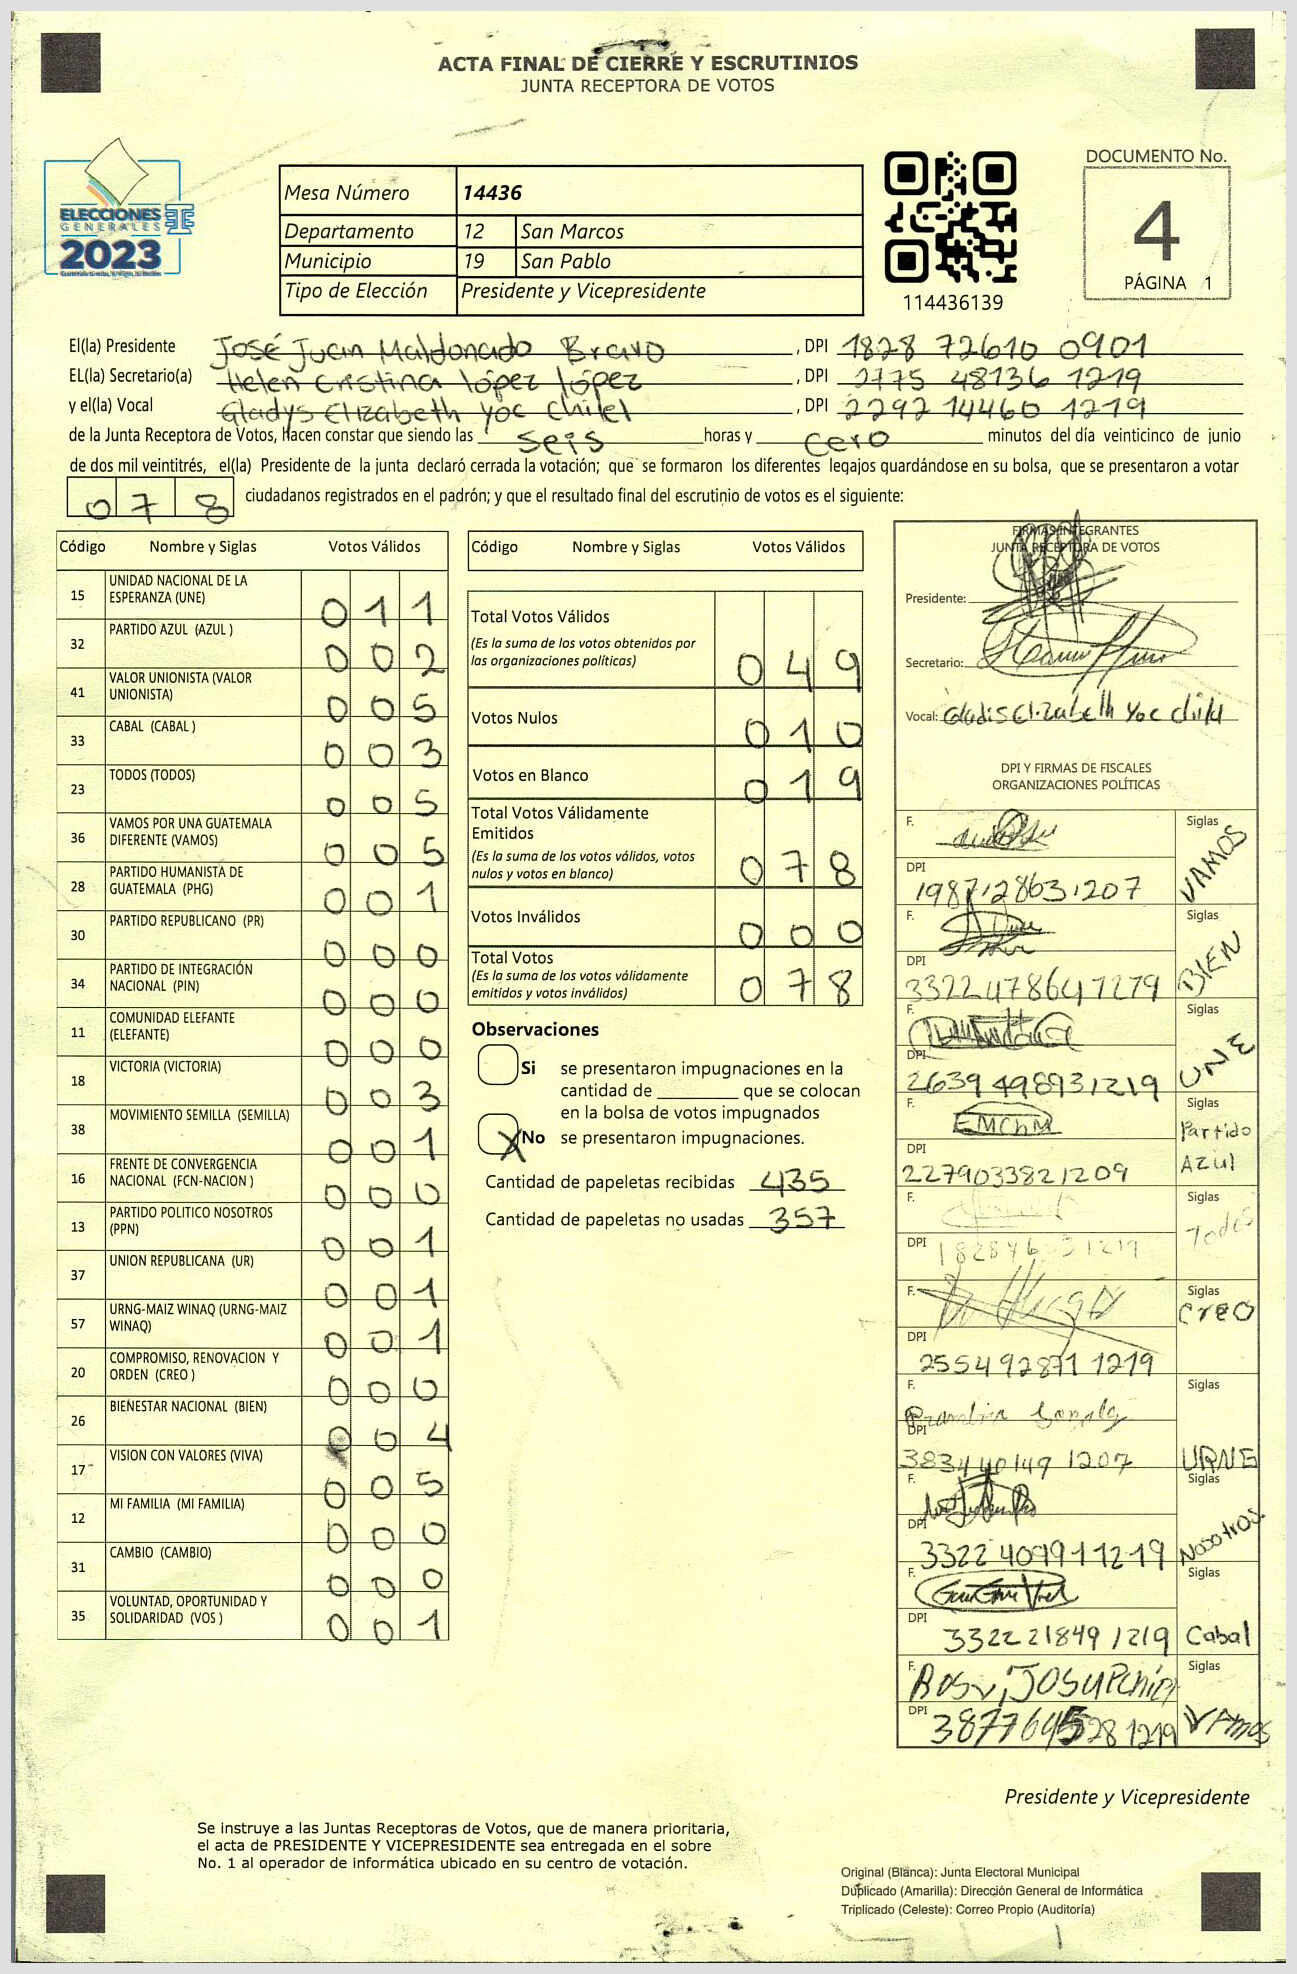 ACTA FINAL DE CIERRE Y ESCRUTINIOS
JUNTA RECEPTORA DE VOTOS
ELECCIONES
GENERALES
2023
Mesa Número 14436
Departamento 12 San Marcos
Municipio 19 San Pablo
Tipo de Elección Presidente y Vicepresidente
114436139
DOCUMENTO No.
4
PÁGINA 1
El(la) Presidente José Juan Maldonado Bravo , DPI 1828 72610 0901
EL(la) Secretario(a) Helen Cristina López López , DPI 2775 48136 1219
y el(la) Vocal Gladys Elizabeth Yoc Chilel , DPI 2292 14460 1219
de la Junta Receptora de Votos, Hacen constar que siendo las seis horas y cero minutos del día veinticinco de junio
de dos mil veintitrés, el(la) Presidente de la junta declaró cerrada la votación; que se formaron los diferentes legajos guardándose en su bolsa, que se presentaron a votar
078 ciudadanos registrados en el padrón; y que el resultado final del escrutinio de votos es el siguiente:
Código Nombre y Siglas Votos Válidos
15 UNIDAD NACIONAL DE LA ESPERANZA (UNE) 011
32 PARTIDO AZUL (AZUL ) 002
41 VALOR UNIONISTA (VALOR UNIONISTA) 005
33 CABAL (CABAL ) 003
23 TODOS (TODOS) 005
36 VAMOS POR UNA GUATEMALA DIFERENTE (VAMOS) 005
28 PARTIDO HUMANISTA DE GUATEMALA (PHG) 001
30 PARTIDO REPUBLICANO (PR) 000
34 PARTIDO DE INTEGRACIÓN NACIONAL (PIN) 000
11 COMUNIDAD ELEFANTE (ELEFANTE) 000
18 VICTORIA (VICTORIA) 003
38 MOVIMIENTO SEMILLA (SEMILLA) 001
16 FRENTE DE CONVERGENCIA NACIONAL (FCN-NACION ) 000
13 PARTIDO POLITICO NOSOTROS (PPN) 001
37 UNION REPUBLICANA (UR) 001
57 URNG-MAIZ WINAQ (URNG-MAIZ WINAQ) 001
20 COMPROMISO, RENOVACION Y ORDEN (CREO ) 000
26 BIENESTAR NACIONAL (BIEN) 004
17 VISION CON VALORES (VIVA) 005
12 MI FAMILIA (MI FAMILIA) 000
31 CAMBIO (CAMBIO) 000
35 VOLUNTAD, OPORTUNIDAD Y SOLIDARIDAD (VOS ) 001
Código Nombre y Siglas Votos Válidos
Total Votos Válidos 049
(Es la suma de los votos obtenidos por
las organizaciones políticas)
Votos Nulos 010
Votos en Blanco 019
Total Votos Válidamente
Emitidos 078
(Es la suma de los votos válidos, votos
nulos y votos en blanco)
Votos Inválidos 000
Total Votos 078
(Es la suma de los votos válidamente
emitidos y votos inválidos)
Observaciones
Si se presentaron impugnaciones en la
cantidad de ________ que se colocan
en la bolsa de votos impugnados
X No se presentaron impugnaciones.
Cantidad de papeletas recibidas 435
Cantidad de papeletas no usadas 357
FIRMAS INTEGRANTES
JUNTA RECEPTORA DE VOTOS
Presidente:
Secretario:
Vocal: Gladis Elizabeth Yoc Chilel
DPI Y FIRMAS DE FISCALES
ORGANIZACIONES POLÍTICAS
F. Siglas VAMOS
DPI 1987128631207
F. Siglas BIEN
DPI 3322478647279
F. Siglas UNE
DPI 2639498931219
F. EMChM Siglas Partido Azul
DPI 2279033821209
F. Siglas Todos
DPI
F. Siglas Creo
DPI 2554928711219
F. Siglas URNG
DPI 383440149 1207
F. Siglas Nosotros
DPI 3322409911219
F. Siglas Cabal
DPI 3322218491219
F. Siglas VAmos
DPI 3877645281219
Presidente y Vicepresidente
Se instruye a las Juntas Receptoras de Votos, que de manera prioritaria,
el acta de PRESIDENTE Y VICEPRESIDENTE sea entregada en el sobre
No. 1 al operador de informática ubicado en su centro de votación.
Original (Blanca): Junta Electoral Municipal
Duplicado (Amarilla): Dirección General de Informática
Triplicado (Celeste): Correo Propio (Auditoría)